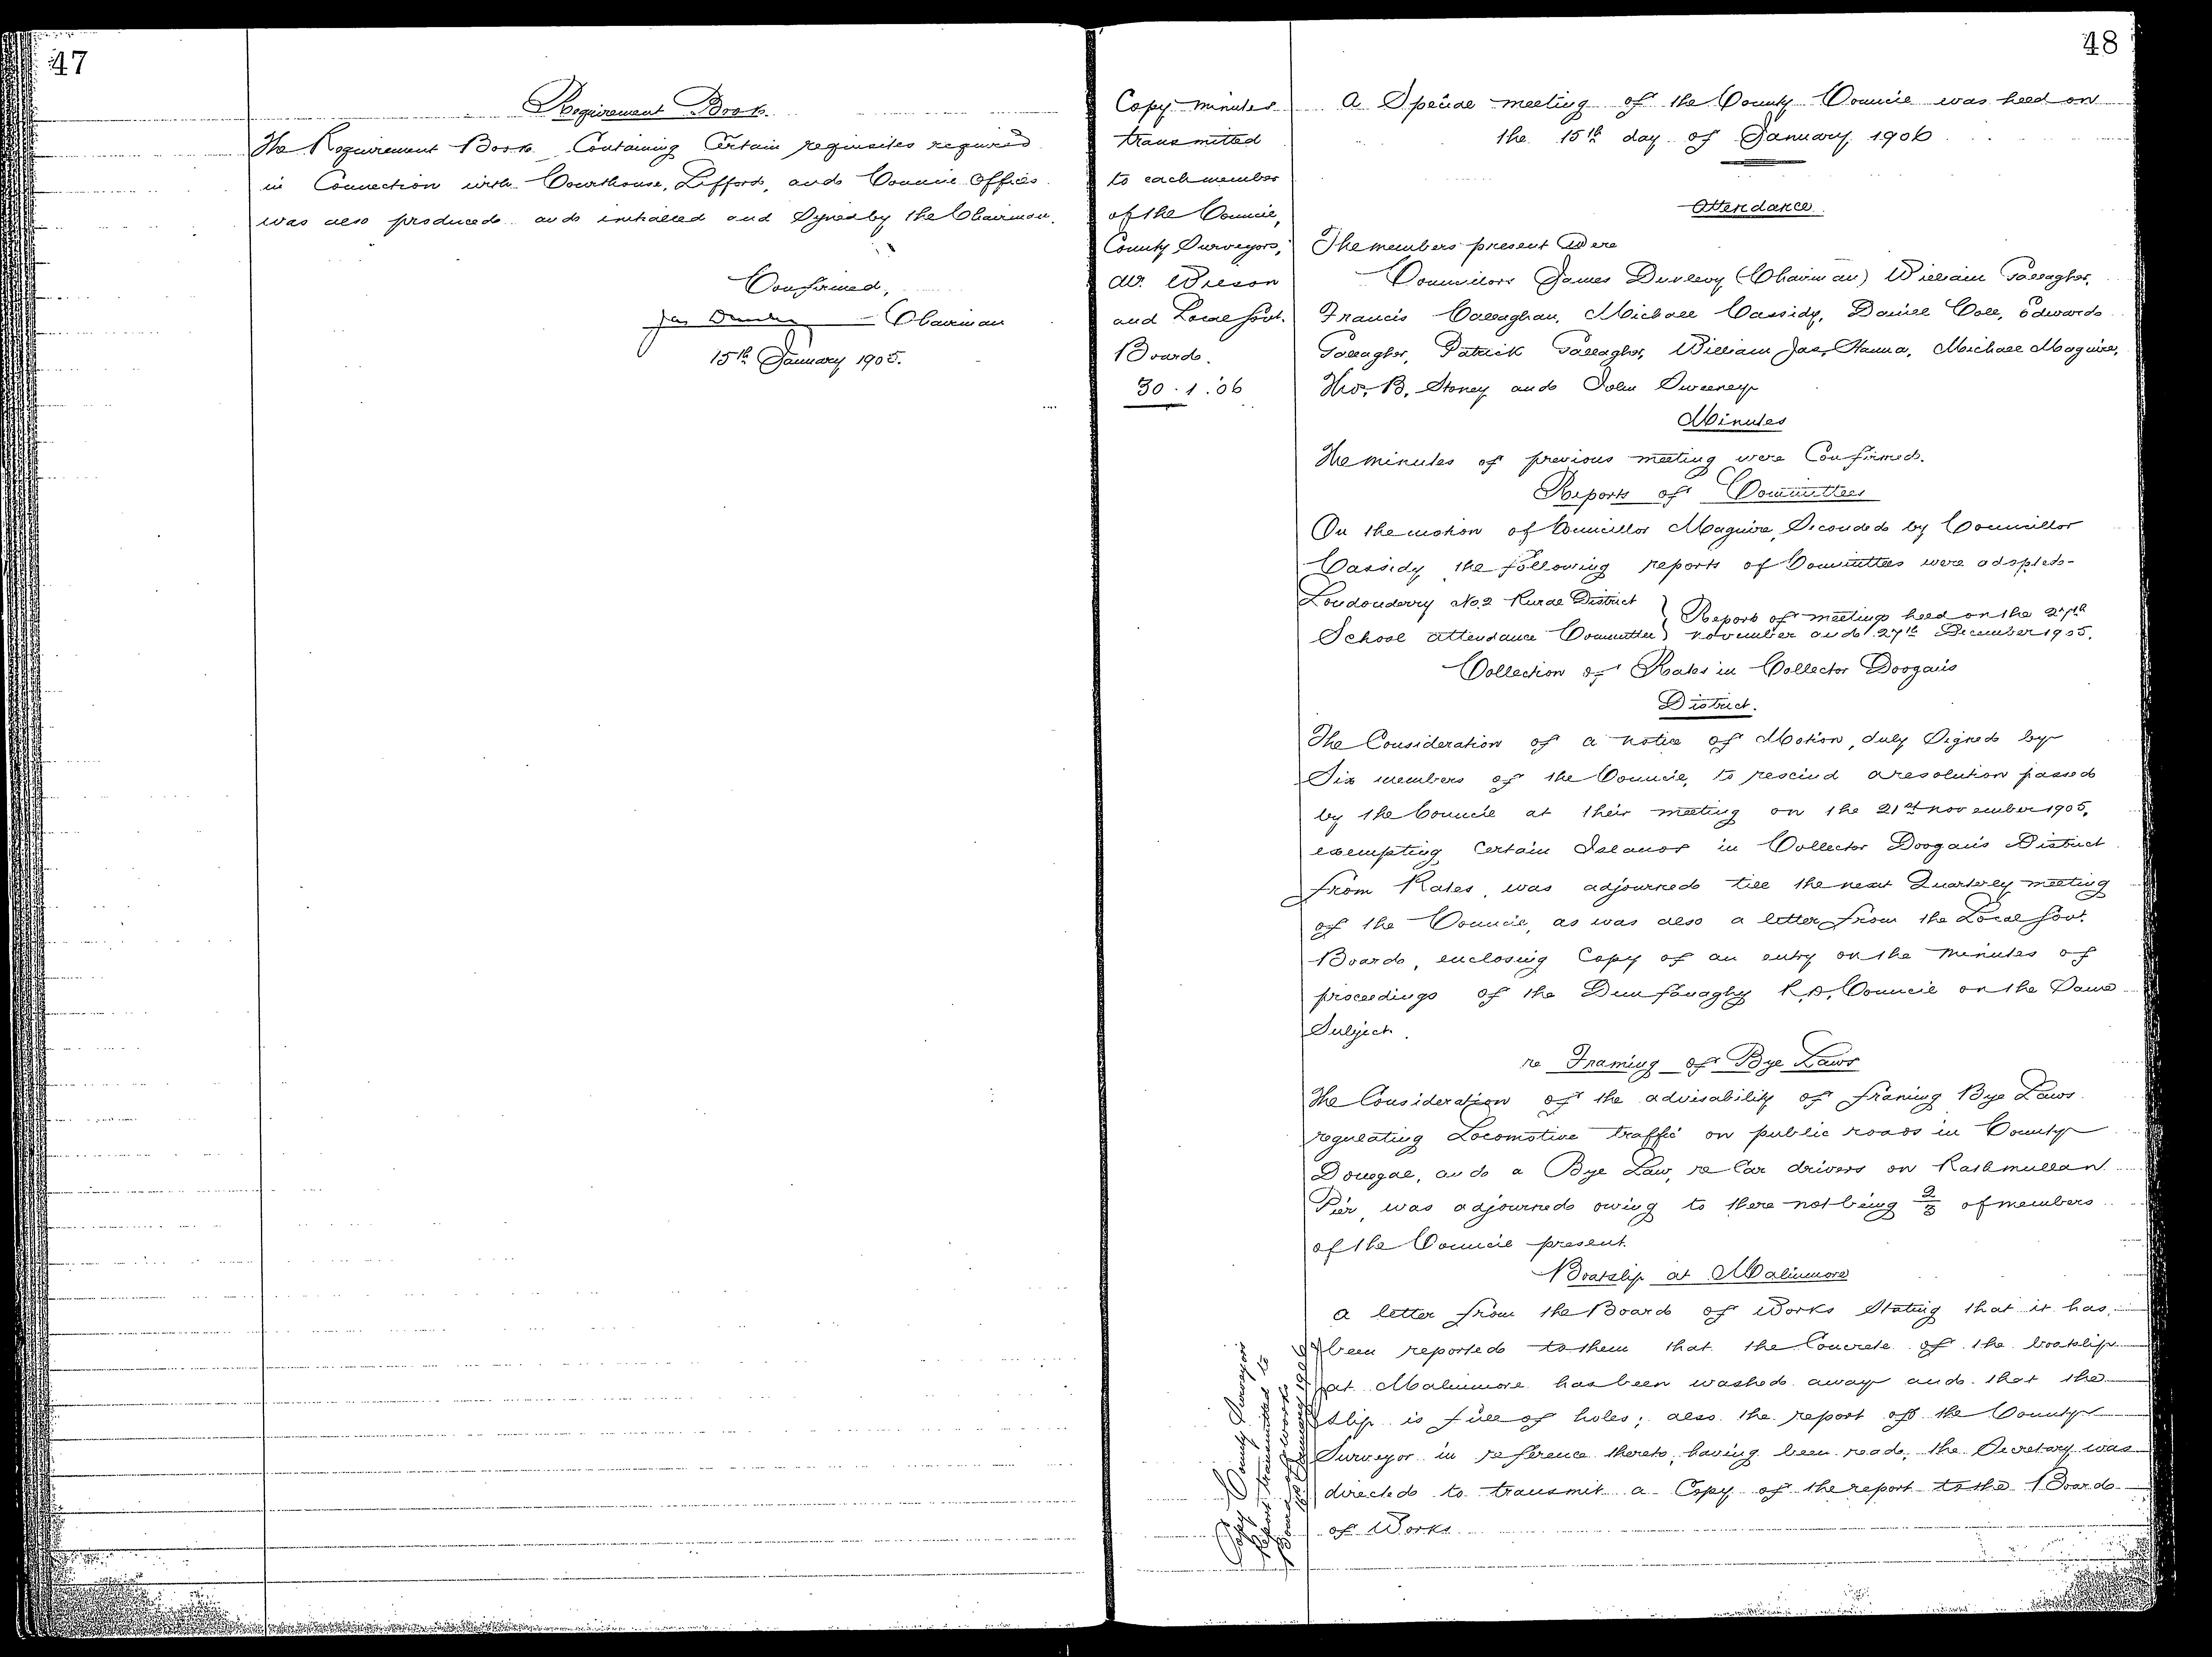 47
Requirement Book
The Requirement Book Containing Certain requisites required
in Connection with Courthouse, Lifford, and Council Offices
was also produced and initialled and Signed by the Chairman.
Confirmed,
Jas Dunlevy Chairman
15th January 1905.
48
Copy minutes
transmitted
to each member
of the Council,
County Surveyors,
Mr. Wilson
and Local Govt.
Board.
30.1.06
A Special meeting of the County Council was held on
the 15th day of January 1906
Attendance
The members present Were
Councillors James Dunlevy (Chairman) William Gallagher,
Francis Callaghan, Michael Cassidy, Daniel Coll, Edward
Gallagher, Patrick Gallagher, William Jas. Hanna, Michael Maguire,
Thos. B. Stoney and John Sweeney
Minutes
The minutes of previous meeting were Confirmed.
Reports of Committees
On the motion of Councillor Maguire, Seconded by Councillor
Cassidy the following reports of Committees were adopted-
Londonderry No. 2 Rural District
School attendance Committee
Report of meetings held on the 27th
November and 27th December 1905.
Collection of Rates in Collector Doogan's
District.
The Consideration of a notice of Motion, duly Signed by
Six members of the Council, to rescind a resolution passed
by the Council at their meeting on the 21st November 1905,
exempting Certain Islands in Collector Doogan's District
from Rates, was adjourned till the next Quarterly meeting
of the Council, as was also a letter from the Local Govt.
Board, enclosing Copy of an entry on the minutes of
proceedings of the Dunfanaghy R.D. Council on the Same
Subject.
re Framing of Bye Laws
The Consideration of the advisability of framing Bye Laws
regulating Locomotive traffic on public roads in County
Donegal, and a Bye Law, re Car drivers on Rathmullan
Pier, was adjourned owing to there not being 2/3 of members
of the Council present.
Boatslip at Malinmore
A letter from the Board of Works Stating that it has
been reported to them that the Concrete of the boatslip
at Malinmore has been washed away and that the
slip is full of holes; also the report of the County
Surveyor in reference thereto, having been read, the Secretary was
directed to transmit a Copy of the report to the Board
of Works.
Copy County Surveyor's
Report transmitted to
Board of Works
January 1906